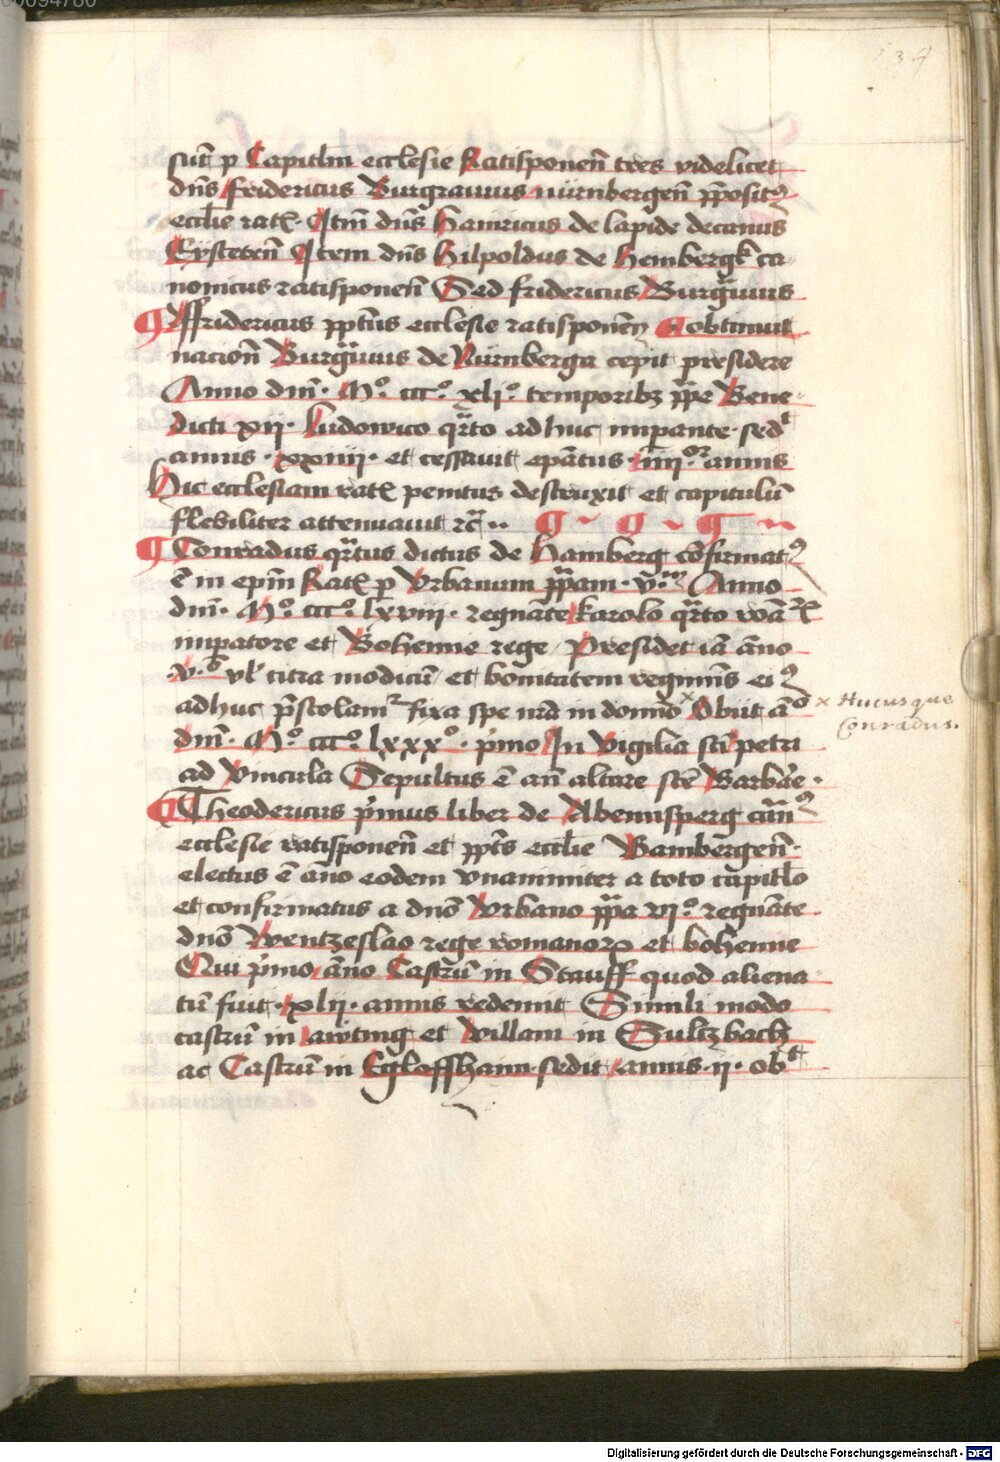 134
sūt p Capitlm ecclesie Ratisponeñ tres videlicet
dn̄s fridericus Burgrauius nürnbergeñ p̄posit⁹
eccl̄ie ratꝭ. Itm̄ dn̄s Hainricus de lapide decanus
Eysteteñ Item dn̄s Hilpoldus de Hembergk ca-
nonicus ratisponeñ Sed fridericus Burg̃uius
¶ Ffridericus ppt̄us ecclesie ratisponeñ ¶ obtinuit
nacioñ Burg̃uius de Nürnberga cepit presidere
Anno dn̄i. M° ccc° xlj° temporibꝫ pp̄e Bene-
dicti xij. Ludowico qr̄to adhuc imperante. sedᵗ
annis. xxiiij. et cessauit ep̄atus. iiijᵒʳ annis
Hic ecclesiam ratꝭ penitus destruxit et capitulū
flebiliter attenuauit ꝛc̄..
¶ Conradus qr̄tus dictus de Hamberg cōfirmat⁹
ē in ep̄m Ratꝭ p Vrbanum pp̄am. v.ᵗᵘ Anno
dn̄i. M° ccc° lxviii. regnāte karolo qr̄to romāꝝ
imp̄atore et Bohemie rege Presidet iā āno
.v.° vl̄ citra modicū et bonitatem regimīs ei⁹
adhuc p̄stolam̃ fixa spe nr̄a in domīo × Obiit āo
dn̄i. M° ccc° lxxx° p̄mo In Vigilia sc̄i petri
ad Vincula Sepultus ē an̄ altare sc̄e Barbāe.
¶ Theodericus p̄mus liber de Abennsperg can̄⁹
ecclesie ratisponeñ et ppt̄s eccl̄ie Bambergeñ.
electus ē āno eodem vnanimiter a toto capitl̄o
et confirmatus a dn̄o Vrbano pp̄a vj° regnāte
dn̄o Wentzeslao rege romanoꝝ et bohemie
Qui p̄mo āno Castrū in Stauff quod aliena-
tū fuit. xlij. annis redemit Simili modo
castrū in äwting et Villam in Sultzbach
ac Castrū in Egloffhaim. sedit annis. ij. obᵗ
× Hucusque
Conradus.
Digitalisierung gefördert durch die Deutsche Forschungsgemeinschaft - DFG